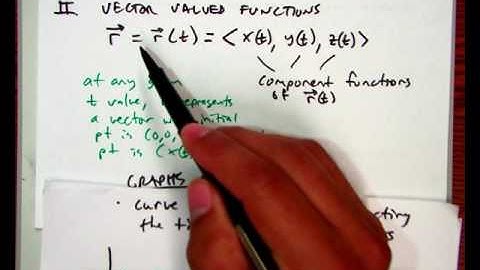 II VECTOR VALUED FUNCTIONS
r⃗ = r⃗(t) = < x(t), y(t), z(t) >
component functions
of r⃗(t)
at any
t value, represents
a vector initial
pt is (0,0,
pt is (x(
GRAPHS
• curve
the